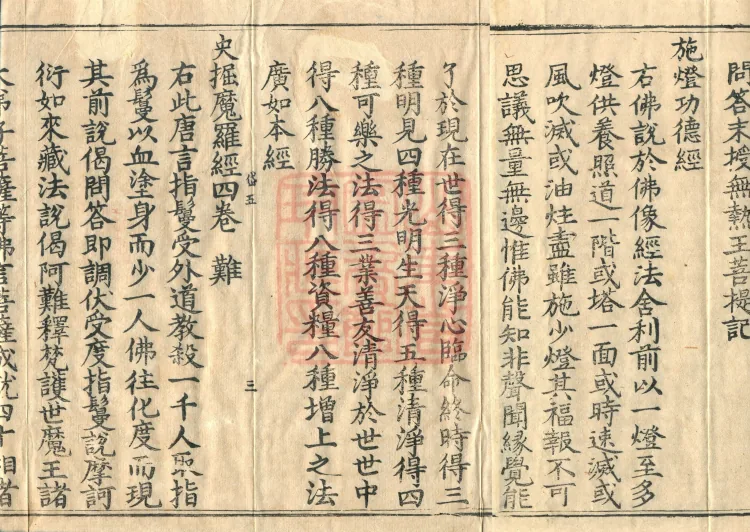 問答未授無熱王菩提記
施燈功德經
右佛說於佛像經法舍利前以一燈至多
燈供養照道一階或塔一面或時速滅或
風吹滅或油炷盡雖施少燈其福報不可
思議無量無邊惟佛能知非聲聞緣覺能
了於現在世得三種淨心臨命終時得三
種明見四種光明生天得五種清淨得四
種可樂之法得三業善友清淨於世世中
得八種勝法得八種資糧八種增上之法
廣如本經
央掘魔羅經四卷 難
岱五
三
右此唐言指鬘受外道教殺一千人取指
為鬘以血塗身而少一人佛往化度而現
其前說偈問答即調伏受度指鬘說摩訶
衍如來藏法說偈阿難釋梵護世魔王諸
大弟子菩薩等佛言菩薩成就四十相者